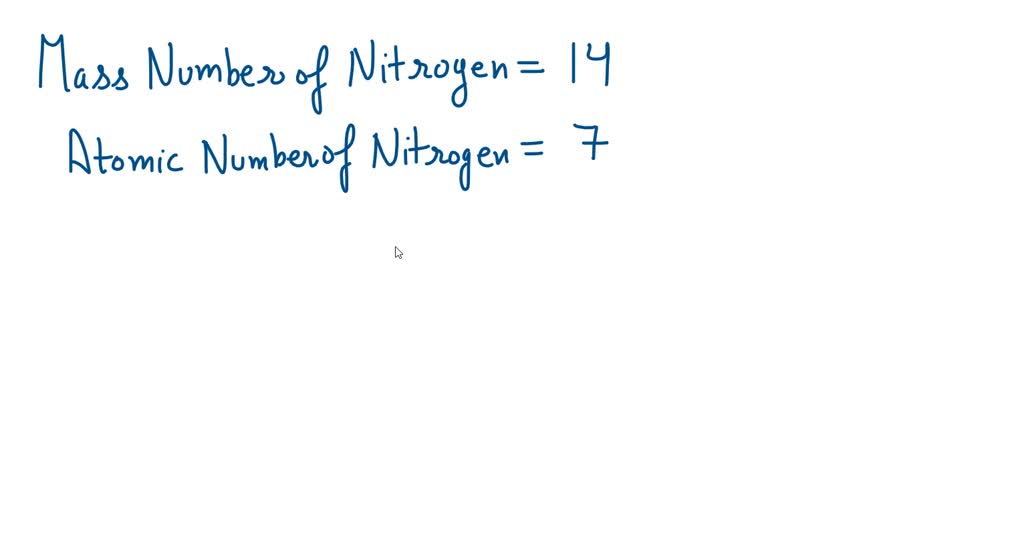 Mass Number of Nitrogen = 14
Atomic Number of Nitrogen = 7